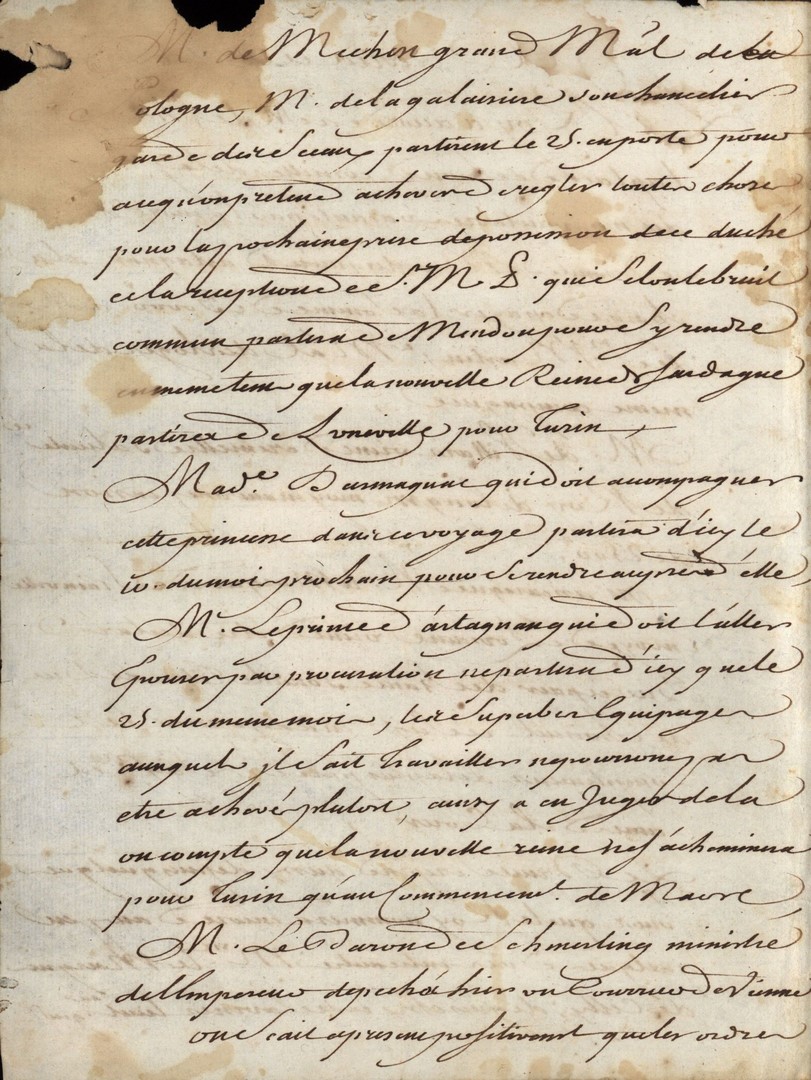 M. de Mechen grand M'al de la
ologne, M. de la galaisiere son chancelier
garde des sceaux partirent le 25. en poste pour
ce qu'on pretend achever de regler toutes choses
pour la prochaine prise de possession de ce duché
et la reception de S. M. P. qui selon le bruit
commun partira de Meudon pour s'y rendre
en meme tems que la nouvelle Reine de Sardagne
partira de Luneville pour Turin,
Mad.e Darmagnac qui doit acompagner
cette princesse dans ce voyage partira d'icy le
10. du mois prochain pour se rendre aupres d'elle
M. Le prince de Carignan qui doit l'aller
Epouser par procuration ne partira d'icy que le
25. du meme mois, les superbes Equipages
auxquels il fait travailler ne pouvant pas
etre achevés plutost, ainsy a en juger de la
on compte que la nouvelle reine ne s'acheminera
pour Turin qu'au Commencemt. de Mars,
M. Le Baron de Schmerling ministre
de l'Empereur depecha hier un Courrier a Vienne
on scait apresent positivemt que les ordres